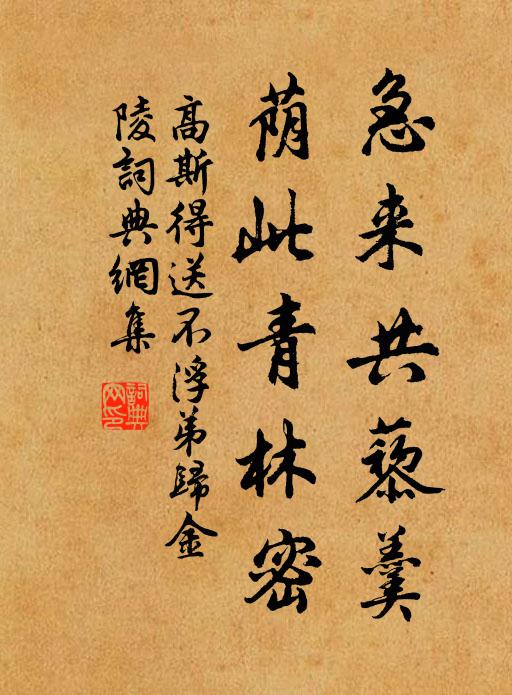 急来共藜羹
荫此青林密
高斯得送不浮弟歸金
陵詞典網集
詞典網印